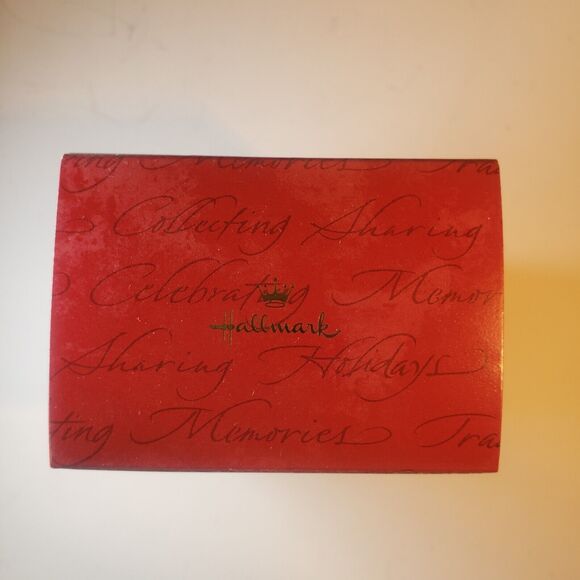 ing Memories Tra
Collecting Sharing
Celebrating Memor
Hallmark
Sharing Holidays
ting Memories Tra